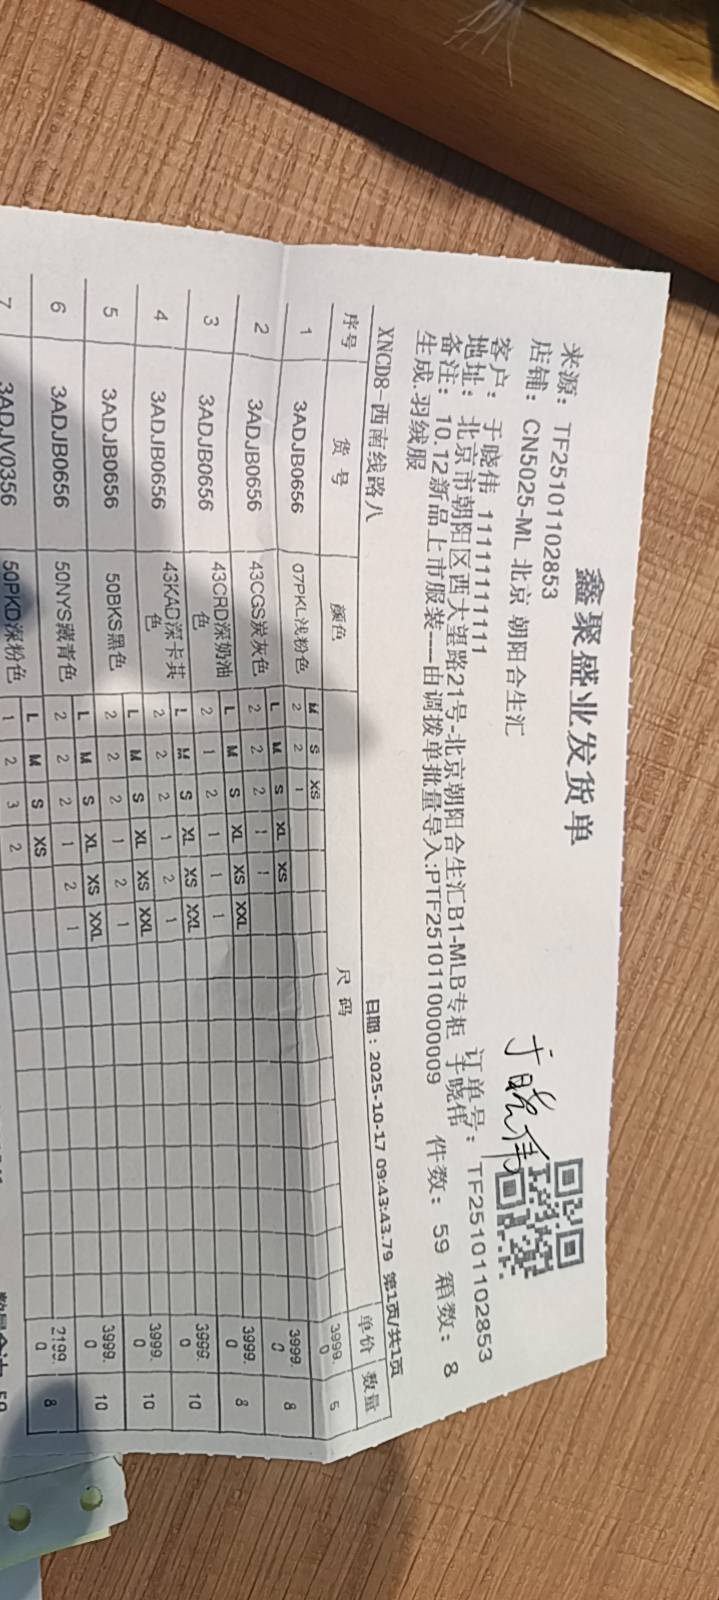 鑫聚盛业发货单
来源：TF25101102853
店铺：CN5025-ML 北京 朝阳合生汇
于晓伟
客户：于晓伟 11111111111 订单号：TF25101102853
地址：北京市朝阳区西大望路21号-北京朝阳合生汇B1-MLB专柜 于晓伟 件数：59 箱数：8
备注：10.12新品上市服装----由调拨单批量导入:PTF2510110000009
生成.羽绒服
XNCD8-西南线路八 日期：2025-10-17 09:43:43.79 第1页/共1页
序号 货号 颜色 尺码 单价 数量
M S XS
1 3ADJB0656 07PKL浅粉色 2 2 1 3999.0 5
L M S XL XS
2 3ADJB0656 43CGS炭灰色 2 2 2 1 1 3999.0 8
L M S XL XS XXL
3 3ADJB0656 43CRD深奶油色 2 1 2 1 1 1 3999.0 8
L M S XL XS XXL
4 3ADJB0656 43KAD深卡其色 2 2 2 1 2 1 3999.0 10
L M S XL XS XXL
5 3ADJB0656 50BKS黑色 2 2 2 1 2 1 3999.0 10
L M S XL XS XXL
6 3ADJB0656 50NYS藏青色 2 2 2 1 2 1 3999.0 10
L M S XS
7 3ADJV0356 50PKD深粉色 1 2 3 2 2199.0 8